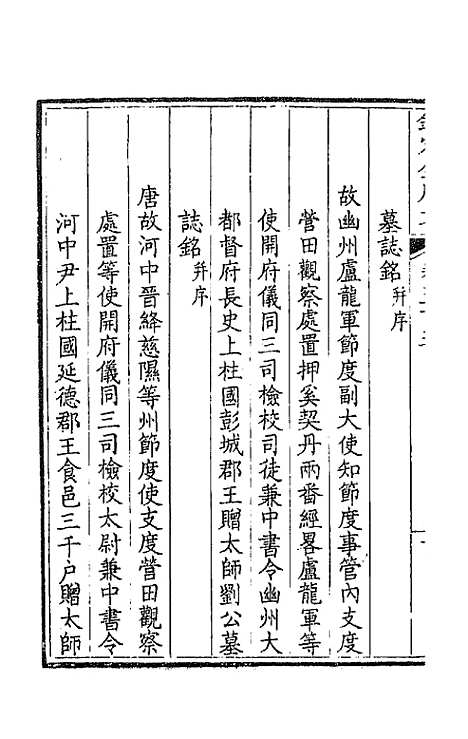 墓誌銘并序
故幽州盧龍軍節度副大使知節度事管內支度
營田觀察處置押奚契丹兩番經畧盧龍軍等
使開府儀同三司檢校司徒兼中書令幽州大
都督府長史上柱國彭城郡王贈太師劉公墓
誌銘并序
唐故河中晉絳慈隰等州節度使支度營田觀察
處置等使開府儀同三司檢校太尉兼中書令
河中尹上柱國延德郡王食邑三千戶贈太師